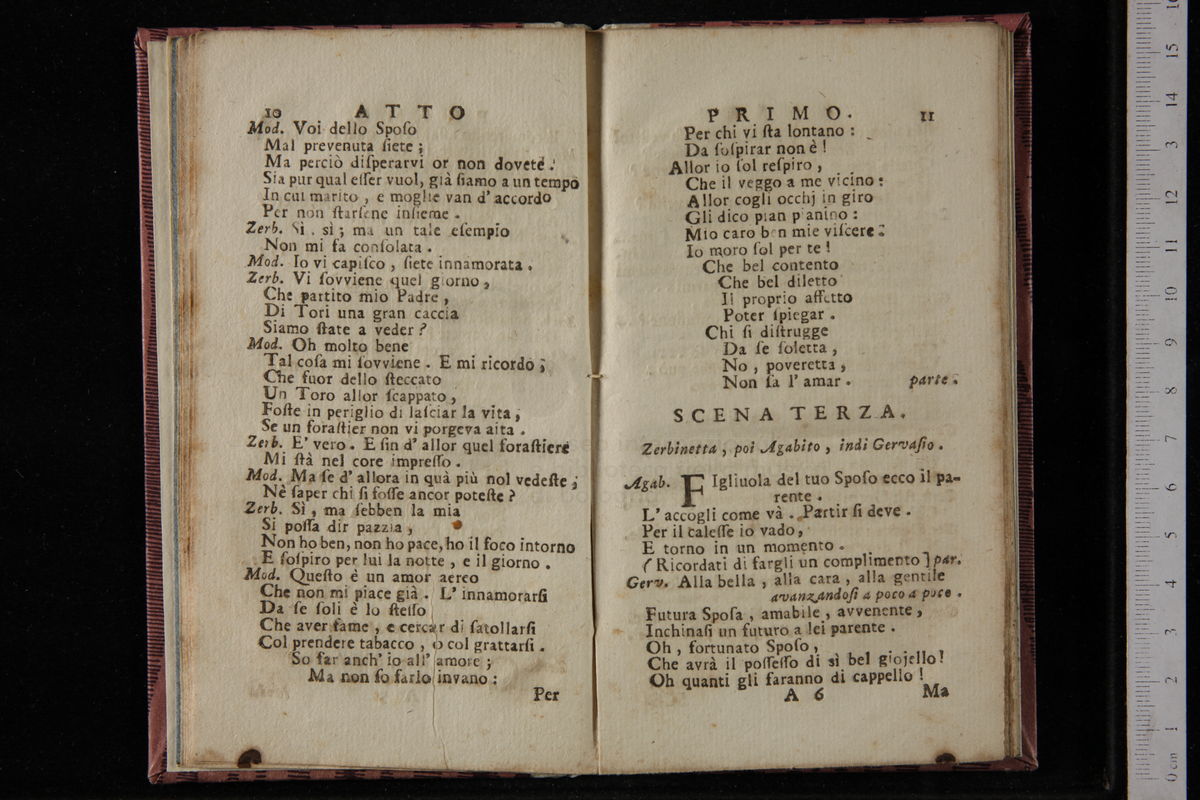 10 ATTO
Mod. Voi dello Spoſo
Mal prevenuta ſiete ;
Ma perciò diſperarvi or non dovete .
Sia pur qual eſſer vuol, già ſiamo a un tempo
In cui marito , e moglie van d' accordo
Per non ſtarſene inſieme .
Zerb. Sì . sì ; ma un tale eſempio
Non mi fa conſolata .
Mod. Io vi capiſco , ſiete innamorata .
Zerb. Vi ſovviene quel giorno ,
Che partito mio Padre ,
Di Tori una gran caccia
Siamo ſtate a veder ?
Mod. Oh molto bene
Tal coſa mi ſovviene . E mi ricordo ;
Che fuor dello ſteccato
Un Toro allor ſcappato ,
Foſte in periglio di laſciar la vita ,
Se un foraſtier non vi porgeva aita .
Zerb. E' vero . E ſin d' allor quel foraſtiere
Mi ſtà nel core impreſſo .
Mod. Ma ſe d' allora in quà più nol vedeſte ;
Nè ſaper chi ſi foſſe ancor poteſte ?
Zerb. Sì , ma ſebben la mia
Si poſſa dir pazzia ,
Non ho ben, non ho pace, ho il foco intorno
E ſoſpiro per lui la notte , e il giorno .
Mod. Queſto è un amor aereo
Che non mi piace già . L' innamorarſi
Da ſe ſoli è lo ſteſſo
Che aver fame , e cercar di ſatollarſi
Col prendere tabacco , o col grattarſi .
So far anch' io all' amore ;
Ma non ſo farlo invano :
Per
PRIMO. 11
Per chi vi ſta lontano :
Da ſoſpirar non è !
Allor io ſol reſpiro ,
Che il veggo a me vicino :
Allor cogli occhj in giro
Gli dico pian pianino :
Mio caro ben mie viſcere :
Io moro ſol per te !
Che bel contento
Che bel diletto
Il proprio affetto
Poter ſpiegar .
Chi ſi diſtrugge
Da ſe ſoletta ,
No , poveretta ,
Non ſa l' amar . parte .
SCENA TERZA.
Zerbinetta , poi Agabito , indi Gervaſio .
Agab. FIgliuola del tuo Spoſo ecco il pa-
rente .
L' accogli come và . Partir ſi deve .
Per il caleſſe io vado ,
E torno in un momento .
( Ricordati di fargli un complimento ] par.
Gerv. Alla bella , alla cara , alla gentile
avanzandoſi a poco a poco .
Futura Spoſa , amabile , avvenente ,
Inchinaſi un futuro a lei parente .
Oh , fortunato Spoſo ,
Che avrà il poſſeſſo di sì bel giojello !
Oh quanti gli faranno di cappello !
A 6 Ma
0 cm 1 2 3 4 5 6 7 8 9 10 11 12 13 14 15 16